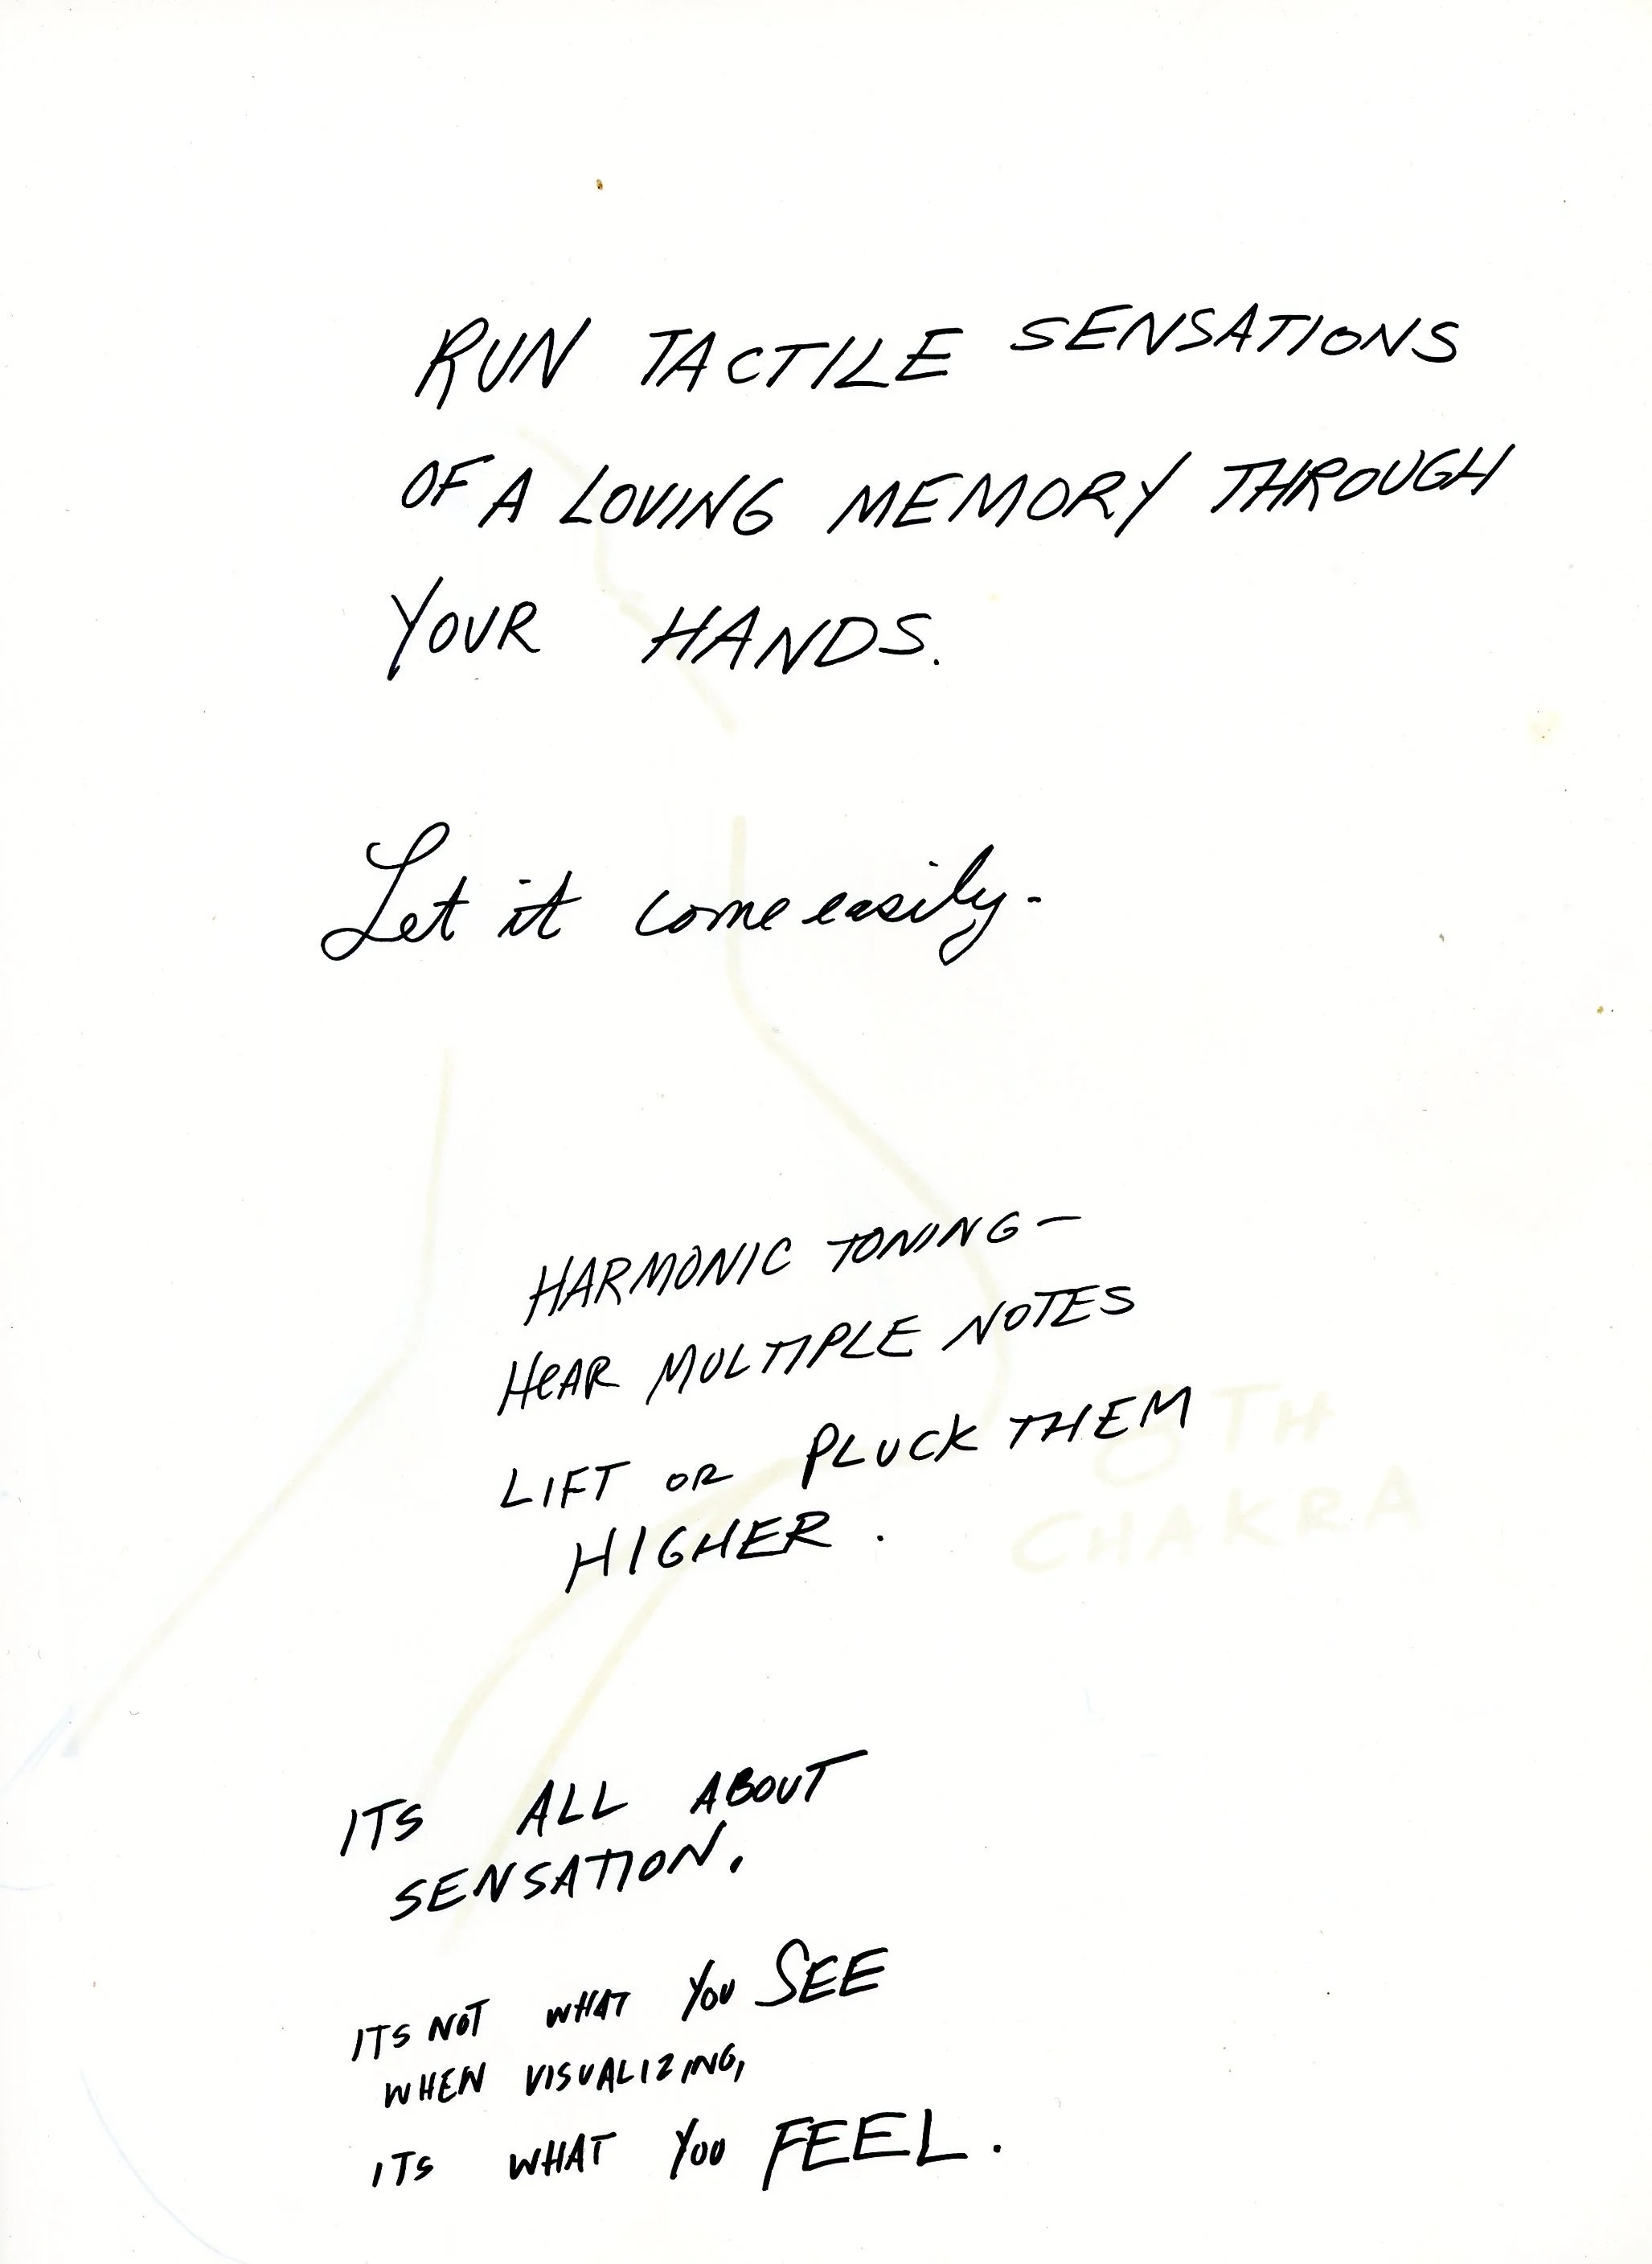 RUN TACTILE SENSATIONS
OF A LOVING MEMORY THROUGH
YOUR HANDS.
Let it come easily-
HARMONIC TONING —
HeAR MULTIPLE NOTES
LIFT OR PLUCK THEM
HIGHER .
8TH
CHAKRA
ITS ALL ABOUT
SENSATION.
ITS NOT WHAT YOU SEE
WHEN VISUALIZING,
ITS WHAT YOU FEEL.